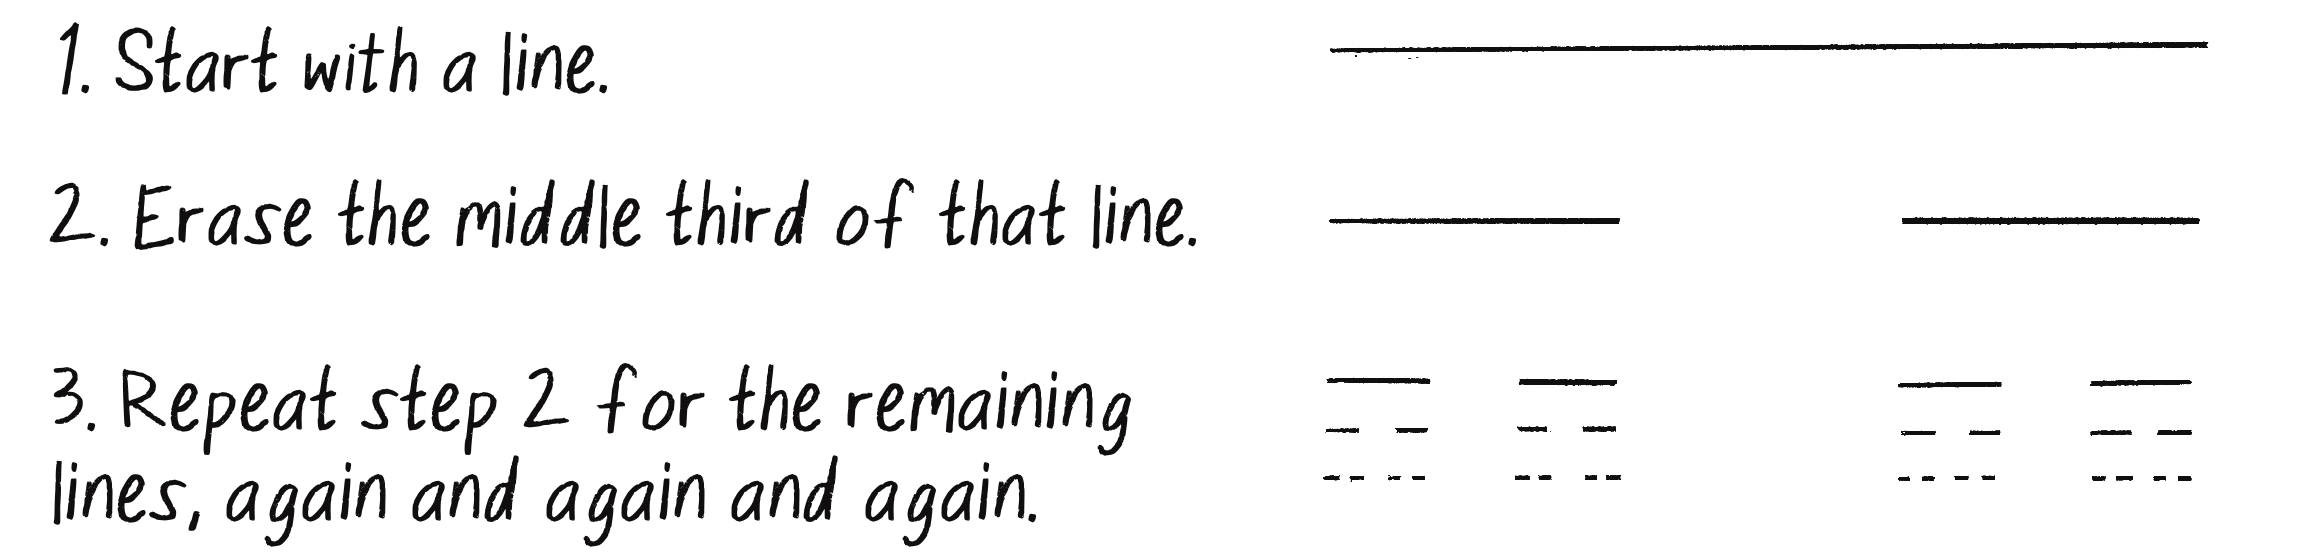 1. Start with a line.
2. Erase the middle third of that line.
3. Repeat step 2 for the remaining
lines, again and again and again.